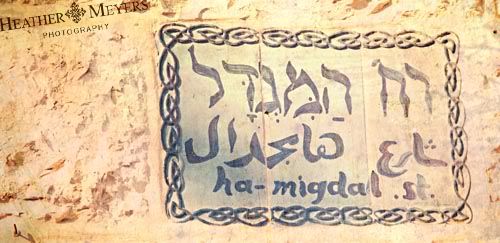 HEATHER MEYERS
PHOTOGRAPHY
רח' הַמִּגְדָּל
شارع هامجدال
ha-migdal .st.